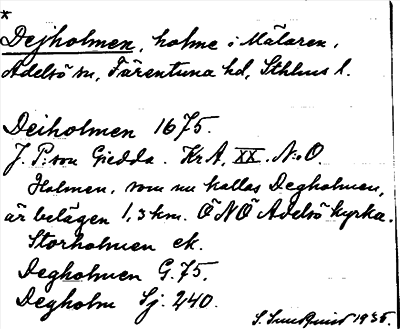 *
Dejholmen, holme i Mälaren,
Adelsö sn, Färentuna hd, Sthlms l.
Deiholmen 1675.
J. P:son Giedda. KrA, XX. N:o O.
Holmen, som nu kallas Degholmen,
är belägen 1,3 km. ÖNÖ Adelsö kyrka.
Storholmen ek.
Degholmen G. 75.
Degholm Sj. 240.
S. 1935.